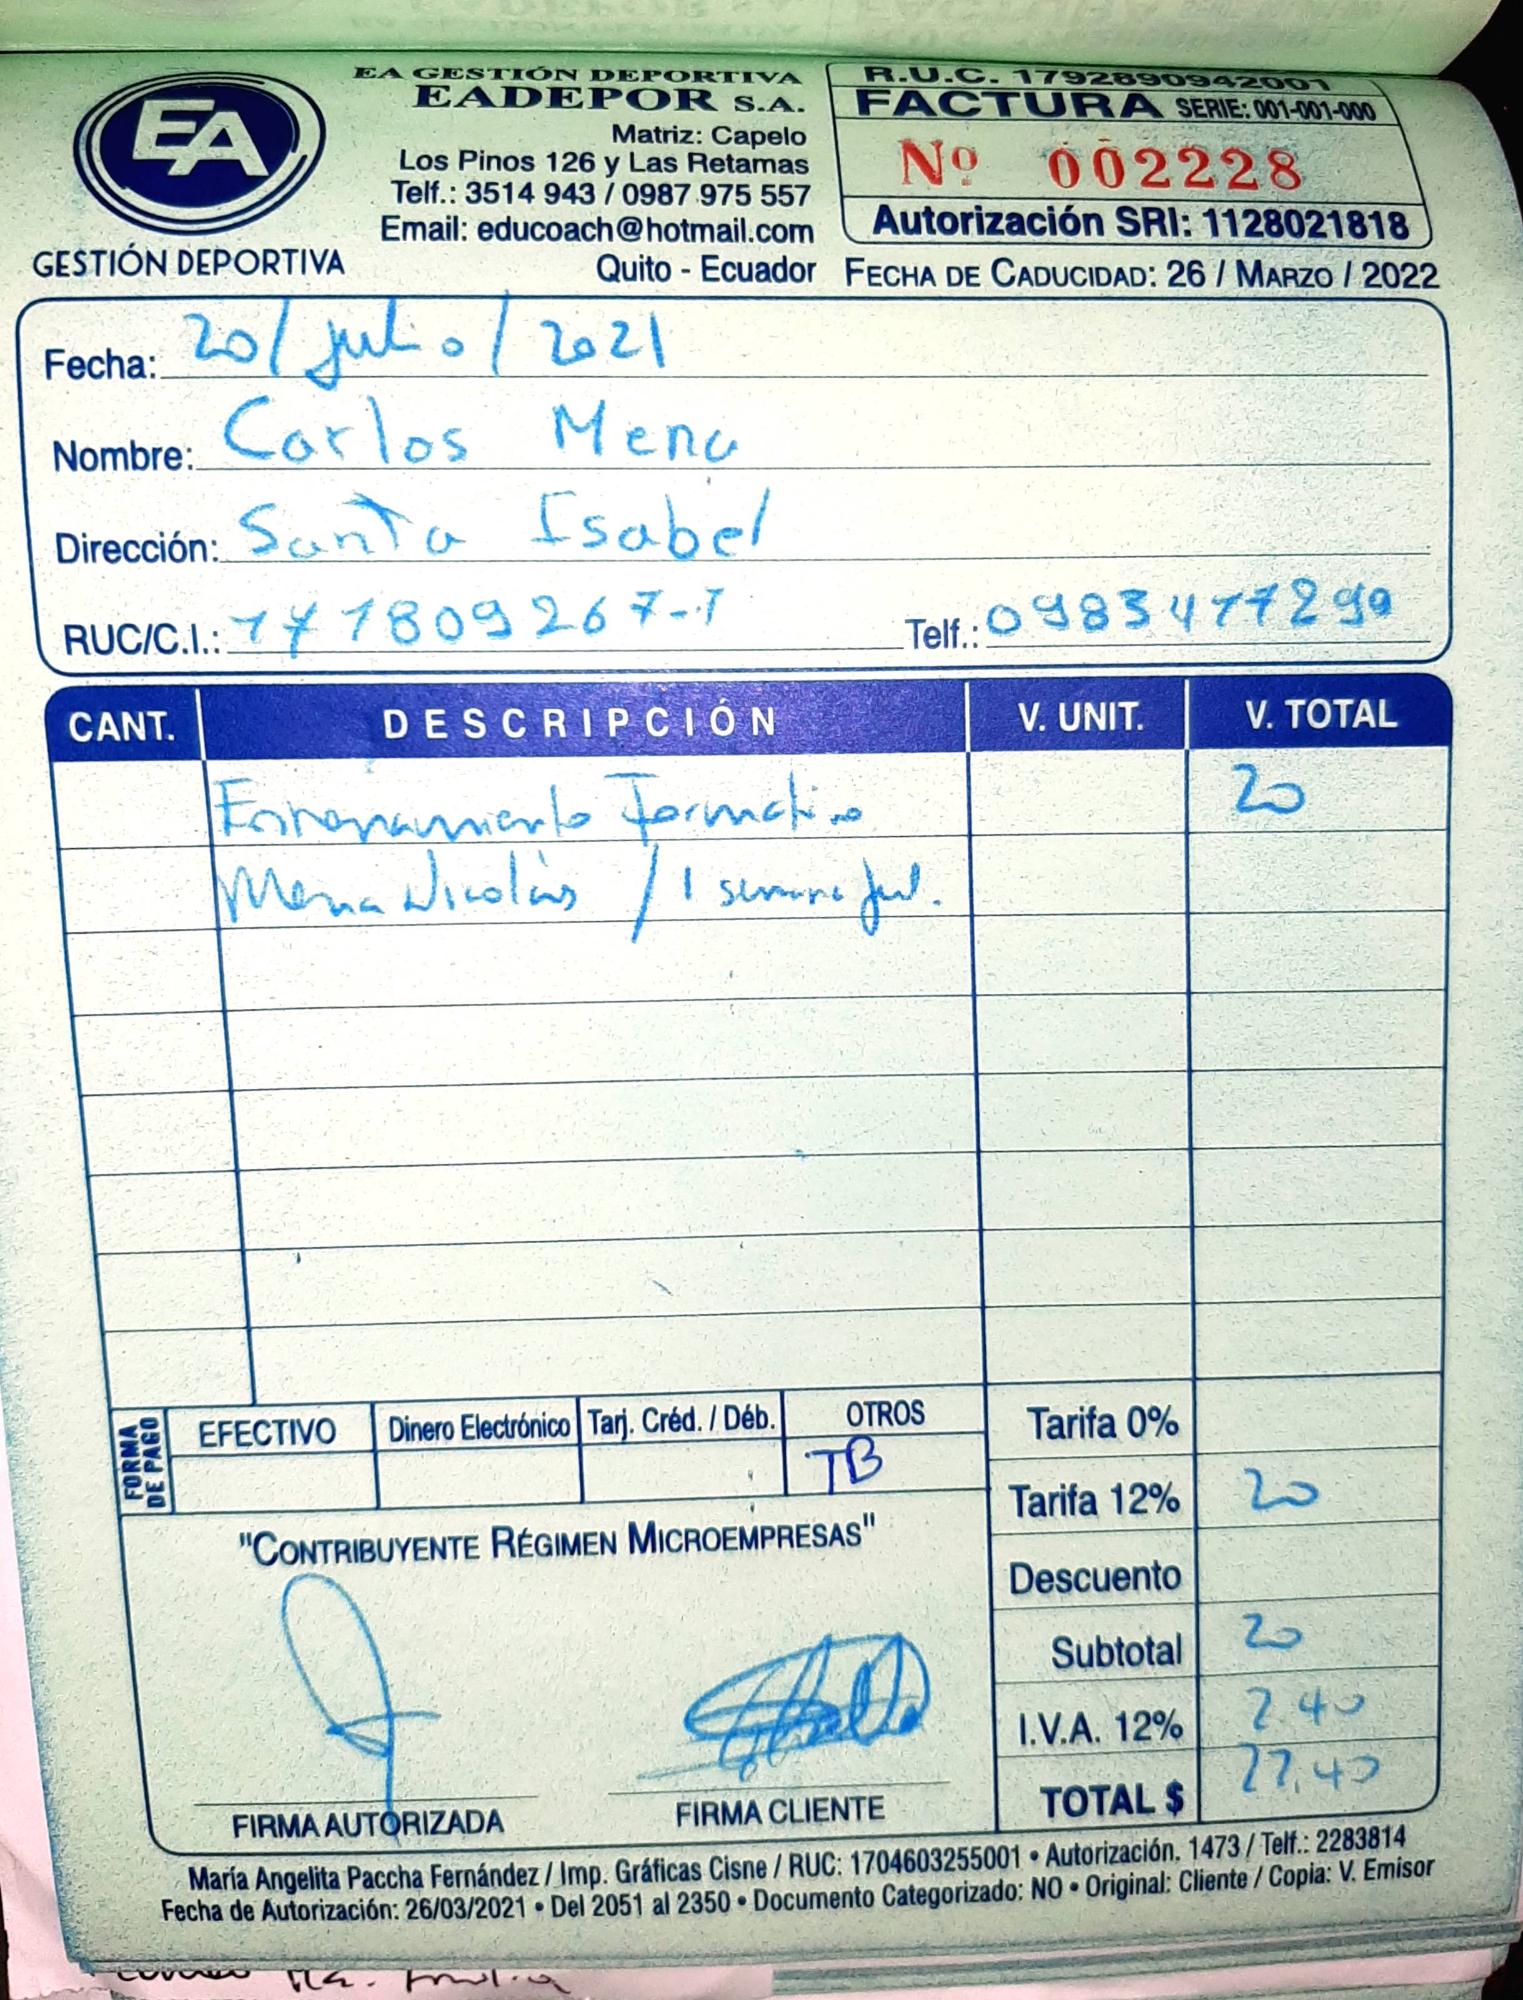 EA GESTIÓN DEPORTIVA
EADEPOR S.A.
Matriz: Capelo
Los Pinos 126 y Las Retamas
Telf.: 3514 943 / 0987 975 557
Email: educoach@hotmail.com
Quito - Ecuador
EA
GESTIÓN DEPORTIVA
R.U.C. 1792890942001
FACTURA SERIE: 001-001-000
Nº 002228
Autorización SRI: 1128021818
FECHA DE CADUCIDAD: 26 / MARZO / 2022
Fecha: 20/julio/2021
Nombre: Carlos Mena
Dirección: Santa Isabel
RUC/C.I.: 171809267-1 Telf.: 0983477290
CANT. DESCRIPCIÓN V. UNIT. V. TOTAL
Entrenamiento Formativo 20
Mena Nicolás / 1 semana jul.
FORMA DE PAGO
EFECTIVO Dinero Electrónico Tarj. Créd. / Déb. OTROS
TB
Tarifa 0%
Tarifa 12% 20
Descuento
Subtotal 20
I.V.A. 12% 2.40
TOTAL $ 22.40
"CONTRIBUYENTE RÉGIMEN MICROEMPRESAS"
FIRMA AUTORIZADA FIRMA CLIENTE
María Angelita Paccha Fernández / Imp. Gráficas Cisne / RUC: 1704603255001 • Autorización. 1473 / Telf.: 2283814
Fecha de Autorización: 26/03/2021 • Del 2051 al 2350 • Documento Categorizado: NO • Original: Cliente / Copia: V. Emisor